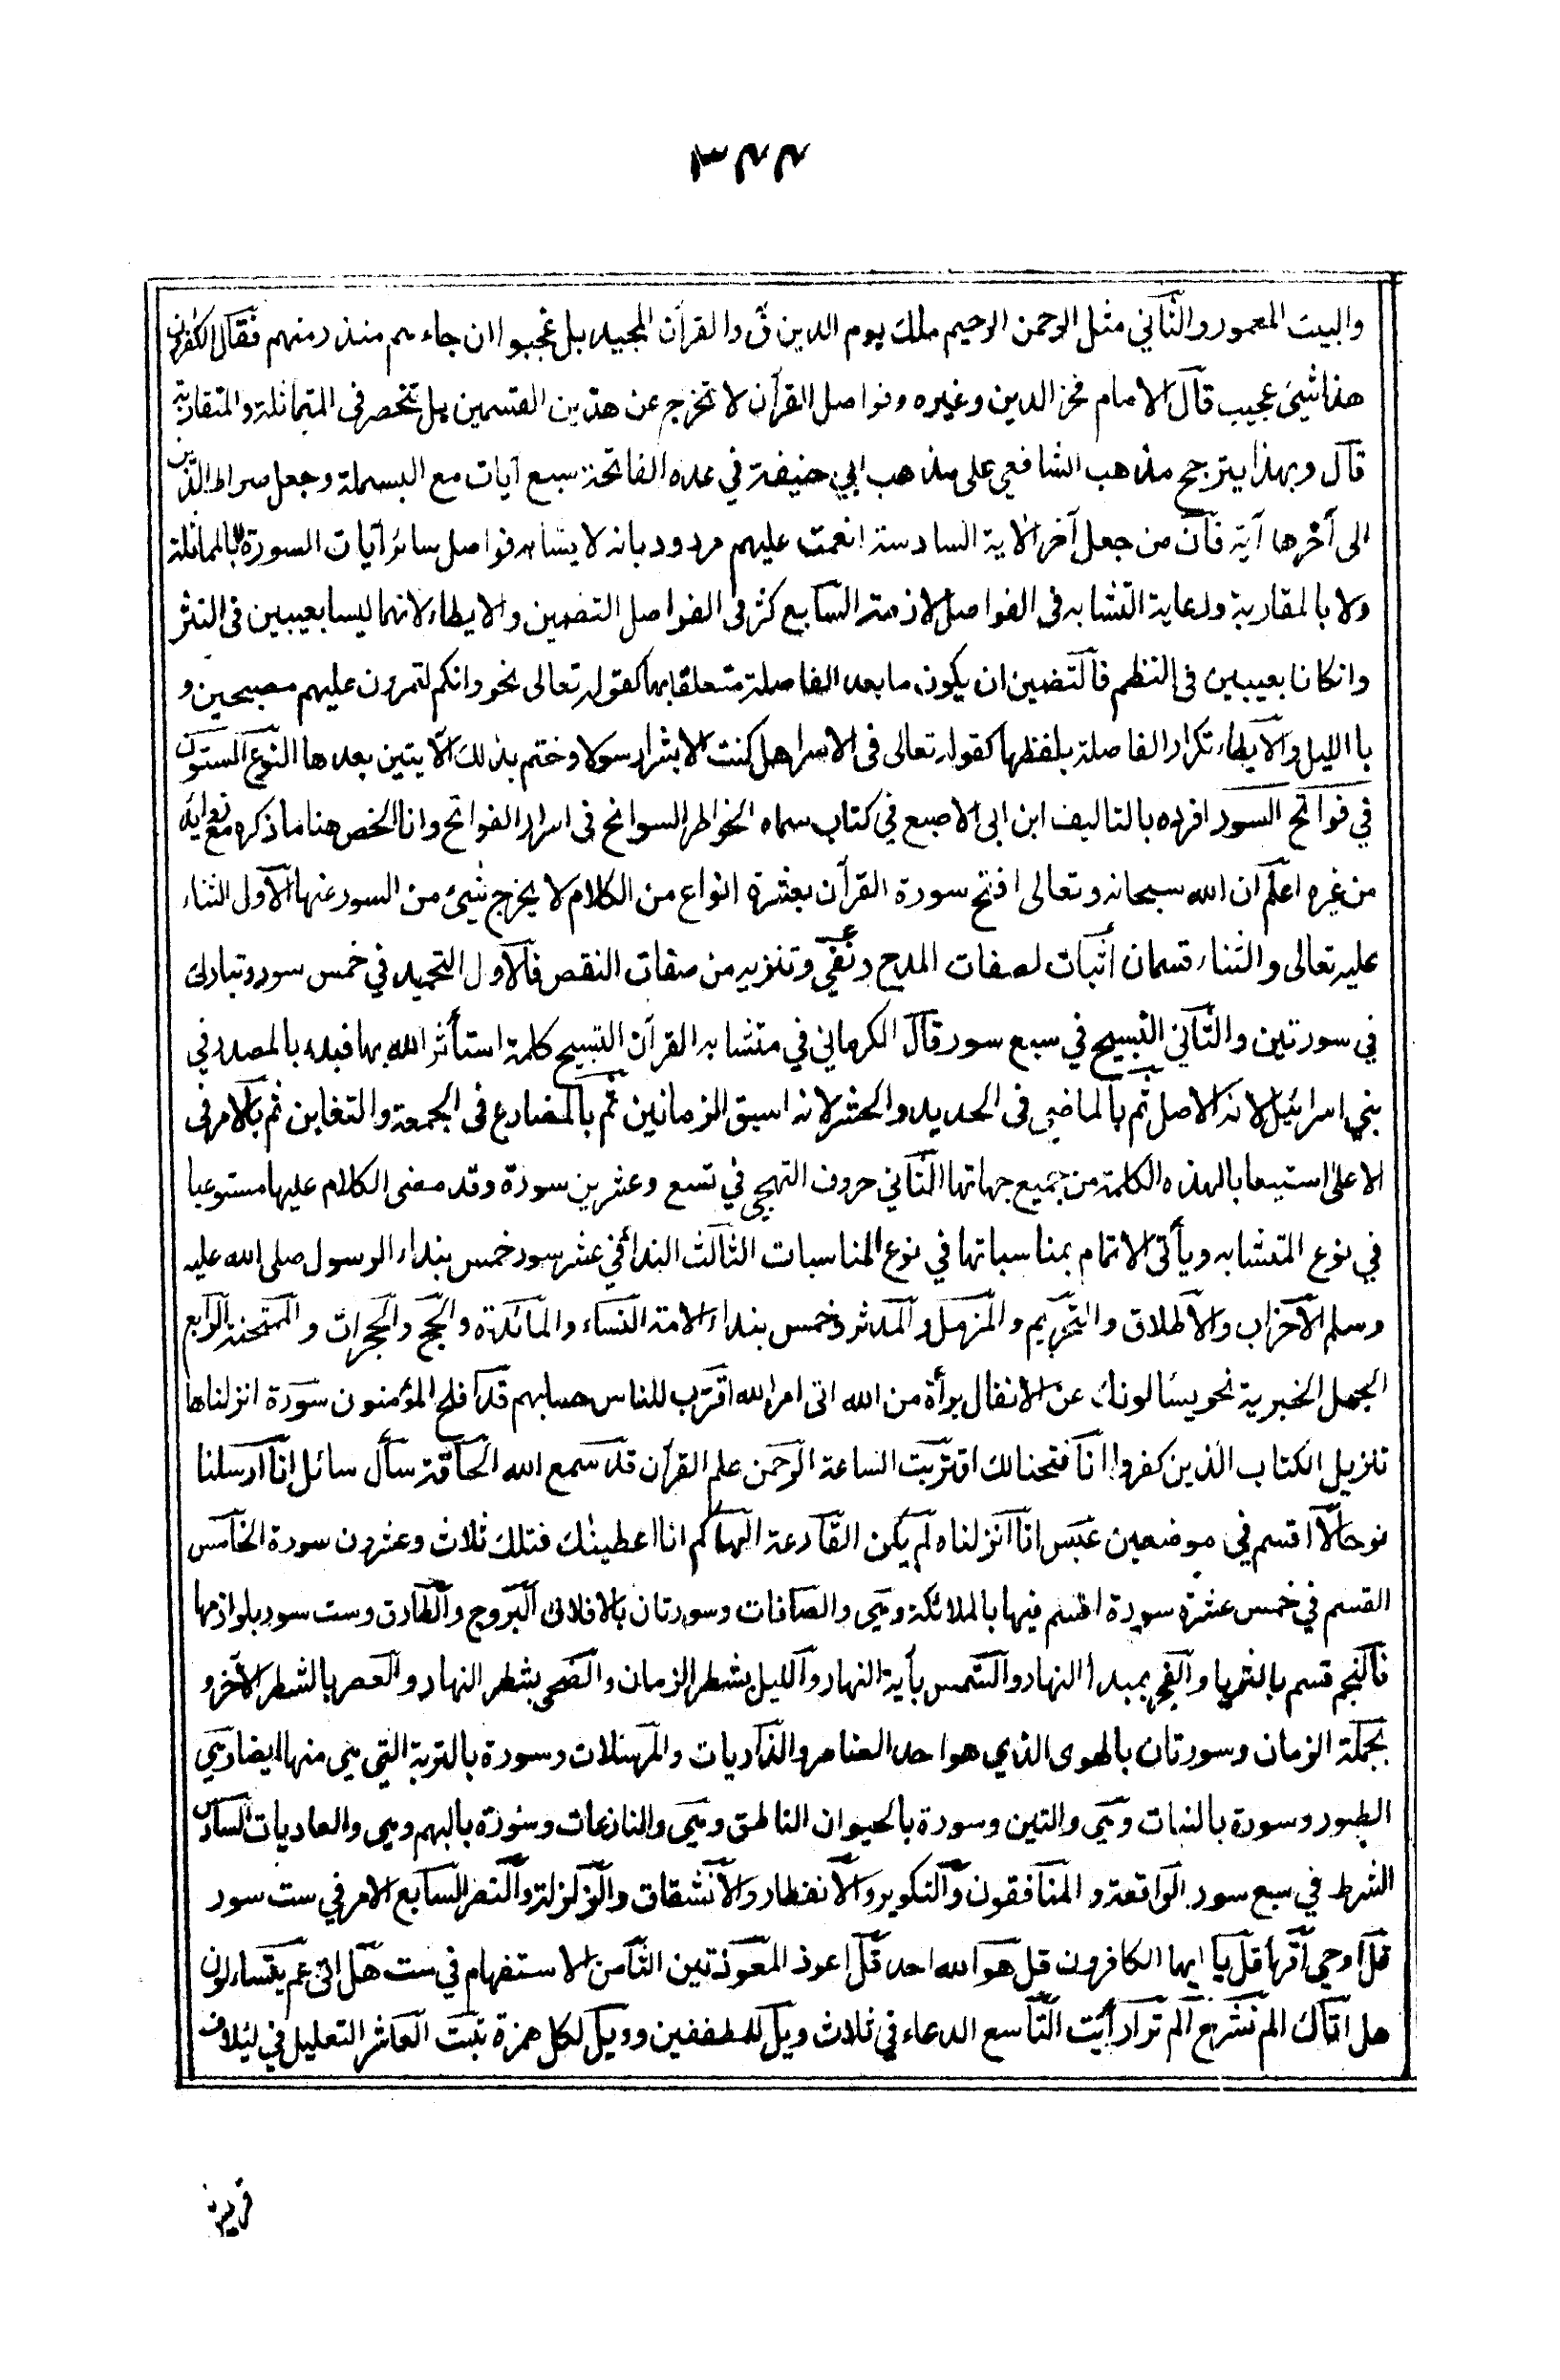 ٣٢٢
والبيت المعمور والثاني مثل الرحمن الرحيم ملك يوم الدين ق والقرآن المجيد بل عجبوا ان جاءهم منذر منهم فقال الكفرون
هذا شيئ عجيب قال الامام فخر الدين وغيره وفواصل القرآن لا تخرج عن هذين القسمين بل تنحصر في المتماثلة والمتقاربة
قال وبهذا يترجح مذهب الشافعي على مذهب ابي حنيفة في عده الفاتحة سبع آيات مع البسملة وجعل صراط الذين
الى آخرها آية فان من جعل آخر الاية السادسة انعمت عليهم مردود بانه لا يشابه فواصل سائر آيات السورة لا بالمماثلة
ولا بالمقاربة ورعاية التشابه في الفواصل لازمة السابع كثر في الفواصل التضمين والايطاء لانهما ليسا بعيبين في النثر
وانكانا بعيبين في النظم فالتضمين ان يكون ما بعد الفاصلة متعلقا بها كقوله تعالى نحو وانكم لتمرون عليهم مصبحين و
بالليل والايطاء تكرار الفاصلة بلفظها كقوله تعالى في الاسرا هل كنت الا بشرا رسولا وختم بذلك الآيتين بعدها النوع الستون
في فواتح السور افرده بالتاليف ابن ابي الاصبع في كتاب سماه الخواطر السوانح في اسرار الفواتح وانا الخص هنا ما ذكره مع زوائد
من غيره اعلم ان الله سبحانه وتعالى افتتح سورة القرآن بعشرة انواع من الكلام لا يخرج شيئ من السور عنها الاول الثناء
عليه تعالى والثناء قسمان اثبات لصفات المدح ونفي وتنزيه من صفات النقص فالاول التحميد في خمس سور وتبارك
في سورتين والثاني التسبيح في سبع سور قال الكرماني في متشابه القرآن التسبيح كلمة استأثر الله بها فبدء بالمصدر في
بني اسرائيل لانه الاصل ثم بالماضي في الحديد والحشر لانه اسبق الزمانين ثم بالمضارع في الجمعة والتغابن ثم بالامر في
الاعلى استيعابا لهذه الكلمة من جميع جهاتها الثاني حروف التهجي في تسع وعشرين سورة وقد مضى الكلام عليها مستوعبا
في نوع المتشابه ويأتى الاتمام بمناسباتها في نوع المناسبات الثالث الندأ في عشر سور خمس بنداء الرسول صلى الله عليه
وسلم الاحزاب والاطلاق والتحريم والمزمل والمدثر وخمس بنداء الامة النساء والمائدة والحج والحجرات والممتحنة الرابع
الجمل الخبرية نحو يسألونك عن الانفال برأة من الله اتى امر الله اقترب للناس حسابهم قد افلح المؤمنون سورة انزلناها
تنزيل الكتاب الذين كفروا انا فتحنا لك اقتربت الساعة الرحمن علم القرآن قد سمع الله الحاقة سأل سائل انا ارسلنا
نوحا لا اقسم في موضعين عبس انا انزلناه لم يكن القارعة الهاكم انا اعطينك فتلك ثلاث وعشرون سورة الخامس
القسم في خمس عشرة سورة اقسم فيها بالملائكة وهى والصافات وسورتان بالافلاك البروج والطارق وست سور بلوازمها
فالنجم قسم بالثريا والفجر بمبدأ النهار والشمس بأية النهار والليل بشطر الزمان والضحى بشطر النهار والعصر بالشطر الآخر و
بجملة الزمان وسورتان بالهوى الذي هو احد العناصر والذاريات والمرسلات وسورة بالتربة التي هي منها ايضا وهي
الطور وسورة بالنبات وهي والتين وسورة بالحيوان الناطق وهي والنازعات وسورة بالبهم وهي والعاديات السادس
الشرط في سبع سور الواقعة و المنافقون والتكوير والانفطار والانشقاق والزلزلة والنصر السابع الامر في ست سور
قل اوحي اقرأ قل يا ايها الكافرون قل هو الله احد قل اعوذ المعوذتين الثامن الاستفهام في ست هل اتى عم يتساءلون
هل اتاك الم نشرح الم تر ارأيت التاسع الدعاء في ثلاث ويل للمطففين وويل لكل همزة تبت العاشر التعليل في لئيلاف
قريش